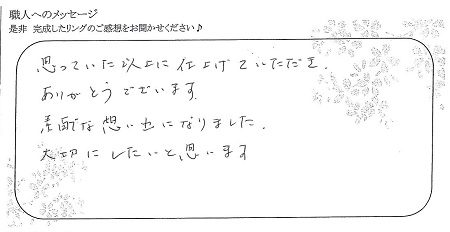 職人へのメッセージ
是非 完成したリングのご感想をお聞かせください♪
思っていた以上に仕上げていただき、
ありがとうございます。
素敵な想い出になりました。
大切にしたいと思います